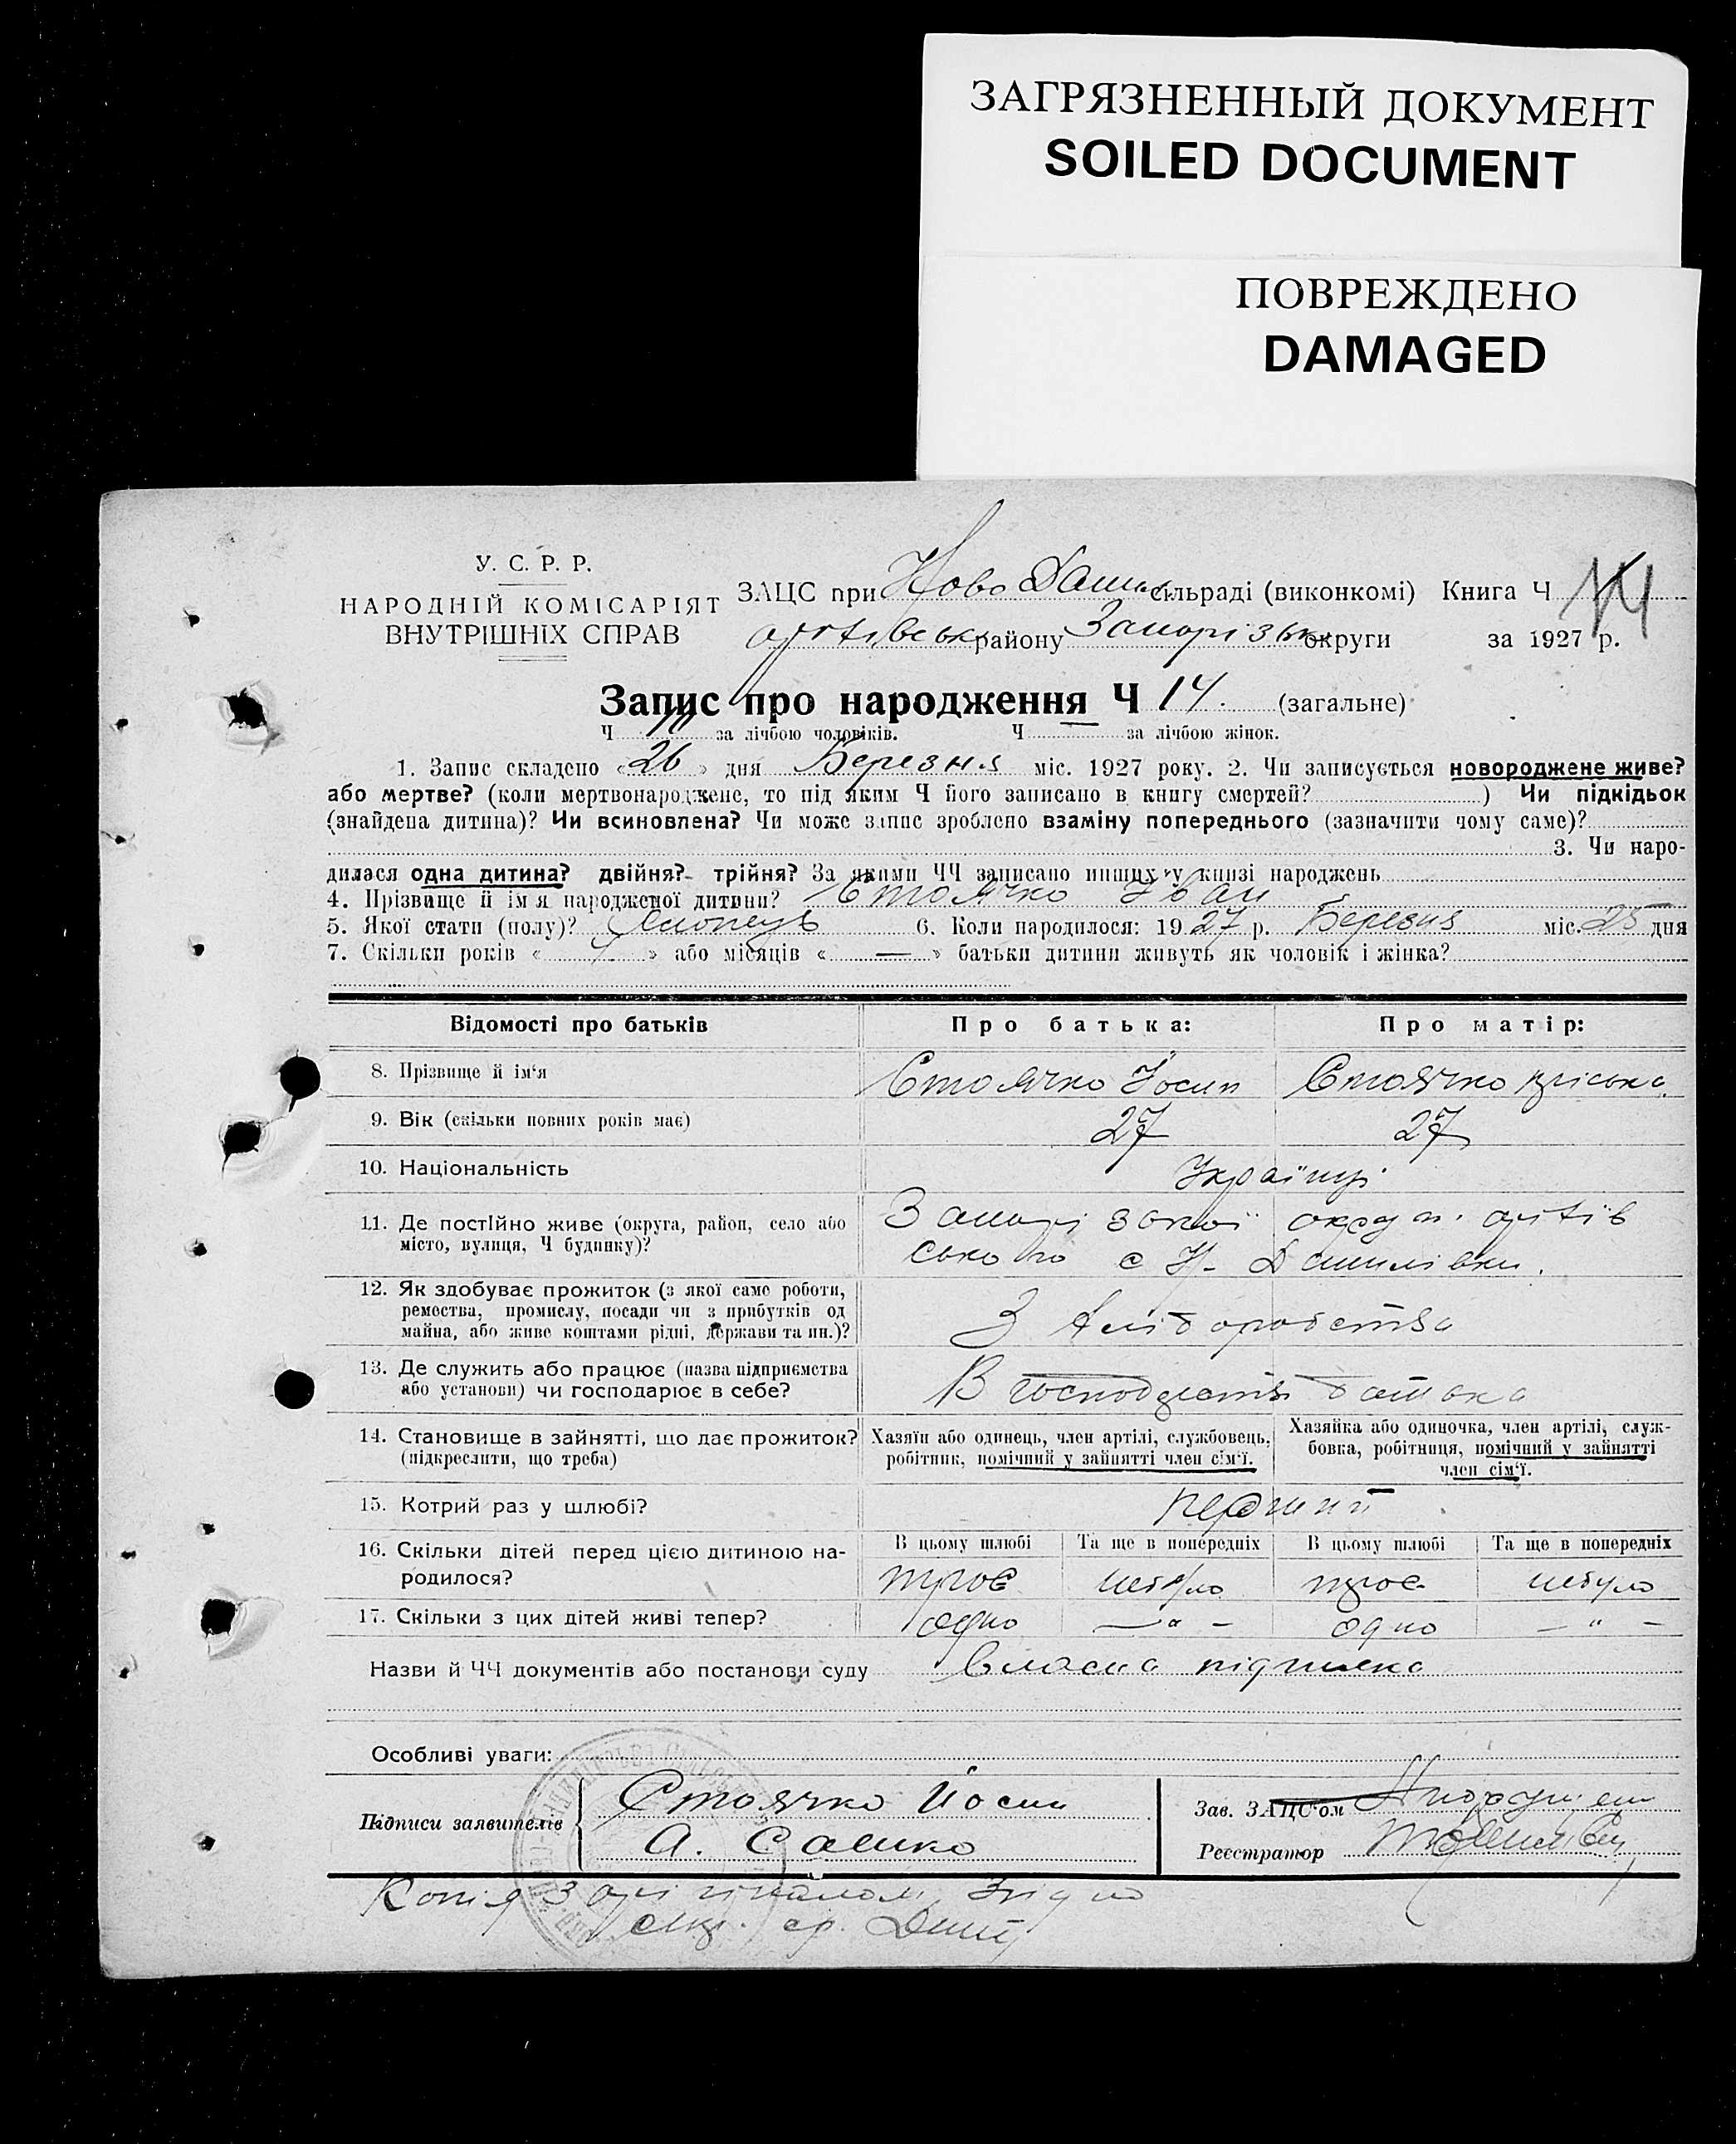 ЗАГРЯЗНЕННЫЙ ДОКУМЕНТ
SOILED DOCUMENT
ПОВРЕЖДЕНО
DAMAGED
У. С. Р. Р.
НАРОДНІЙ КОМІСАРІЯТ
ВНУТРІШНІХ СПРАВ
ЗАЦС при Ново Данил. сільраді (виконкомі) Книга Ч
району Запорізьк. округи за 1927 р.
Запис про народження Ч 14. (загальне)
Ч за лічбою чоловіків. Ч — за лічбою жінок.
1. Запис складено «26» дня Березня міс. 1927 року. 2. Чи записується новороджене живе?
або мертве? (коли мертвонароджене, то під яким Ч його записано в книгу смертей? ) Чи підкідьок
(знайдена дитина)? Чи всиновлена? Чи може запис зроблено взаміну попереднього (зазначити чому саме)?
3. Чи наро-
дилася одна дитина? двійня? трійня? За якими ЧЧ записано инших у книзі народжень
4. Прізвище й ім'я народженої дитини? Стоячко Іван
5. Якої стати (полу)? Хлопець 6. Коли народилося: 1927 р. Березня міс. 25 дня
7. Скільки років « » або місяців « — » батьки дитини живуть як чоловік і жінка?
Відомості про батьків Про батька: Про матір:
8. Прізвище й ім'я Стоячко Йосип Стоячко Пріська
9. Вік (скільки повних років має) 27 27
10. Національність Українці
11. Де постійно живе (округа, район, село або
місто, вулиця, Ч будинку)?
Запорізької округи
ського с Н- Данилівки.
12. Як здобуває прожиток (з якої саме роботи,
ремества, промислу, посади чи з прибутків од
майна, або живе коштами рідні, держави та ин.)?
З хліборобства
13. Де служить або працює (назва підприємства
або установи) чи господарює в себе?
В господарстві батька
14. Становище в зайнятті, що дає прожиток?
(підкреслити, що треба)
Хазяїн або одинець, член артілі, службовець,
робітник, помічний у зайнятті член сім'ї.
Хазяйка або одиночка, член артілі, служ-
бовка, робітниця, помічний у зайнятті
член сім'ї.
15. Котрий раз у шлюбі? перший
16. Скільки дітей перед цією дитиною на-
родилося?
В цьому шлюбі Та ще в попередніх В цьому шлюбі Та ще в попередніх
троє небуло троє небуло
17. Скільки з цих дітей живі тепер? одно — " — одно — " —
Назви й ЧЧ документів або постанови суду Власна підписка
Особливі уваги:
Підписи заявителів
Стоячко Йосип
А. Сашко
Зав. ЗАЦС'ом
Реєстратор
Копія з оригіналом згідно